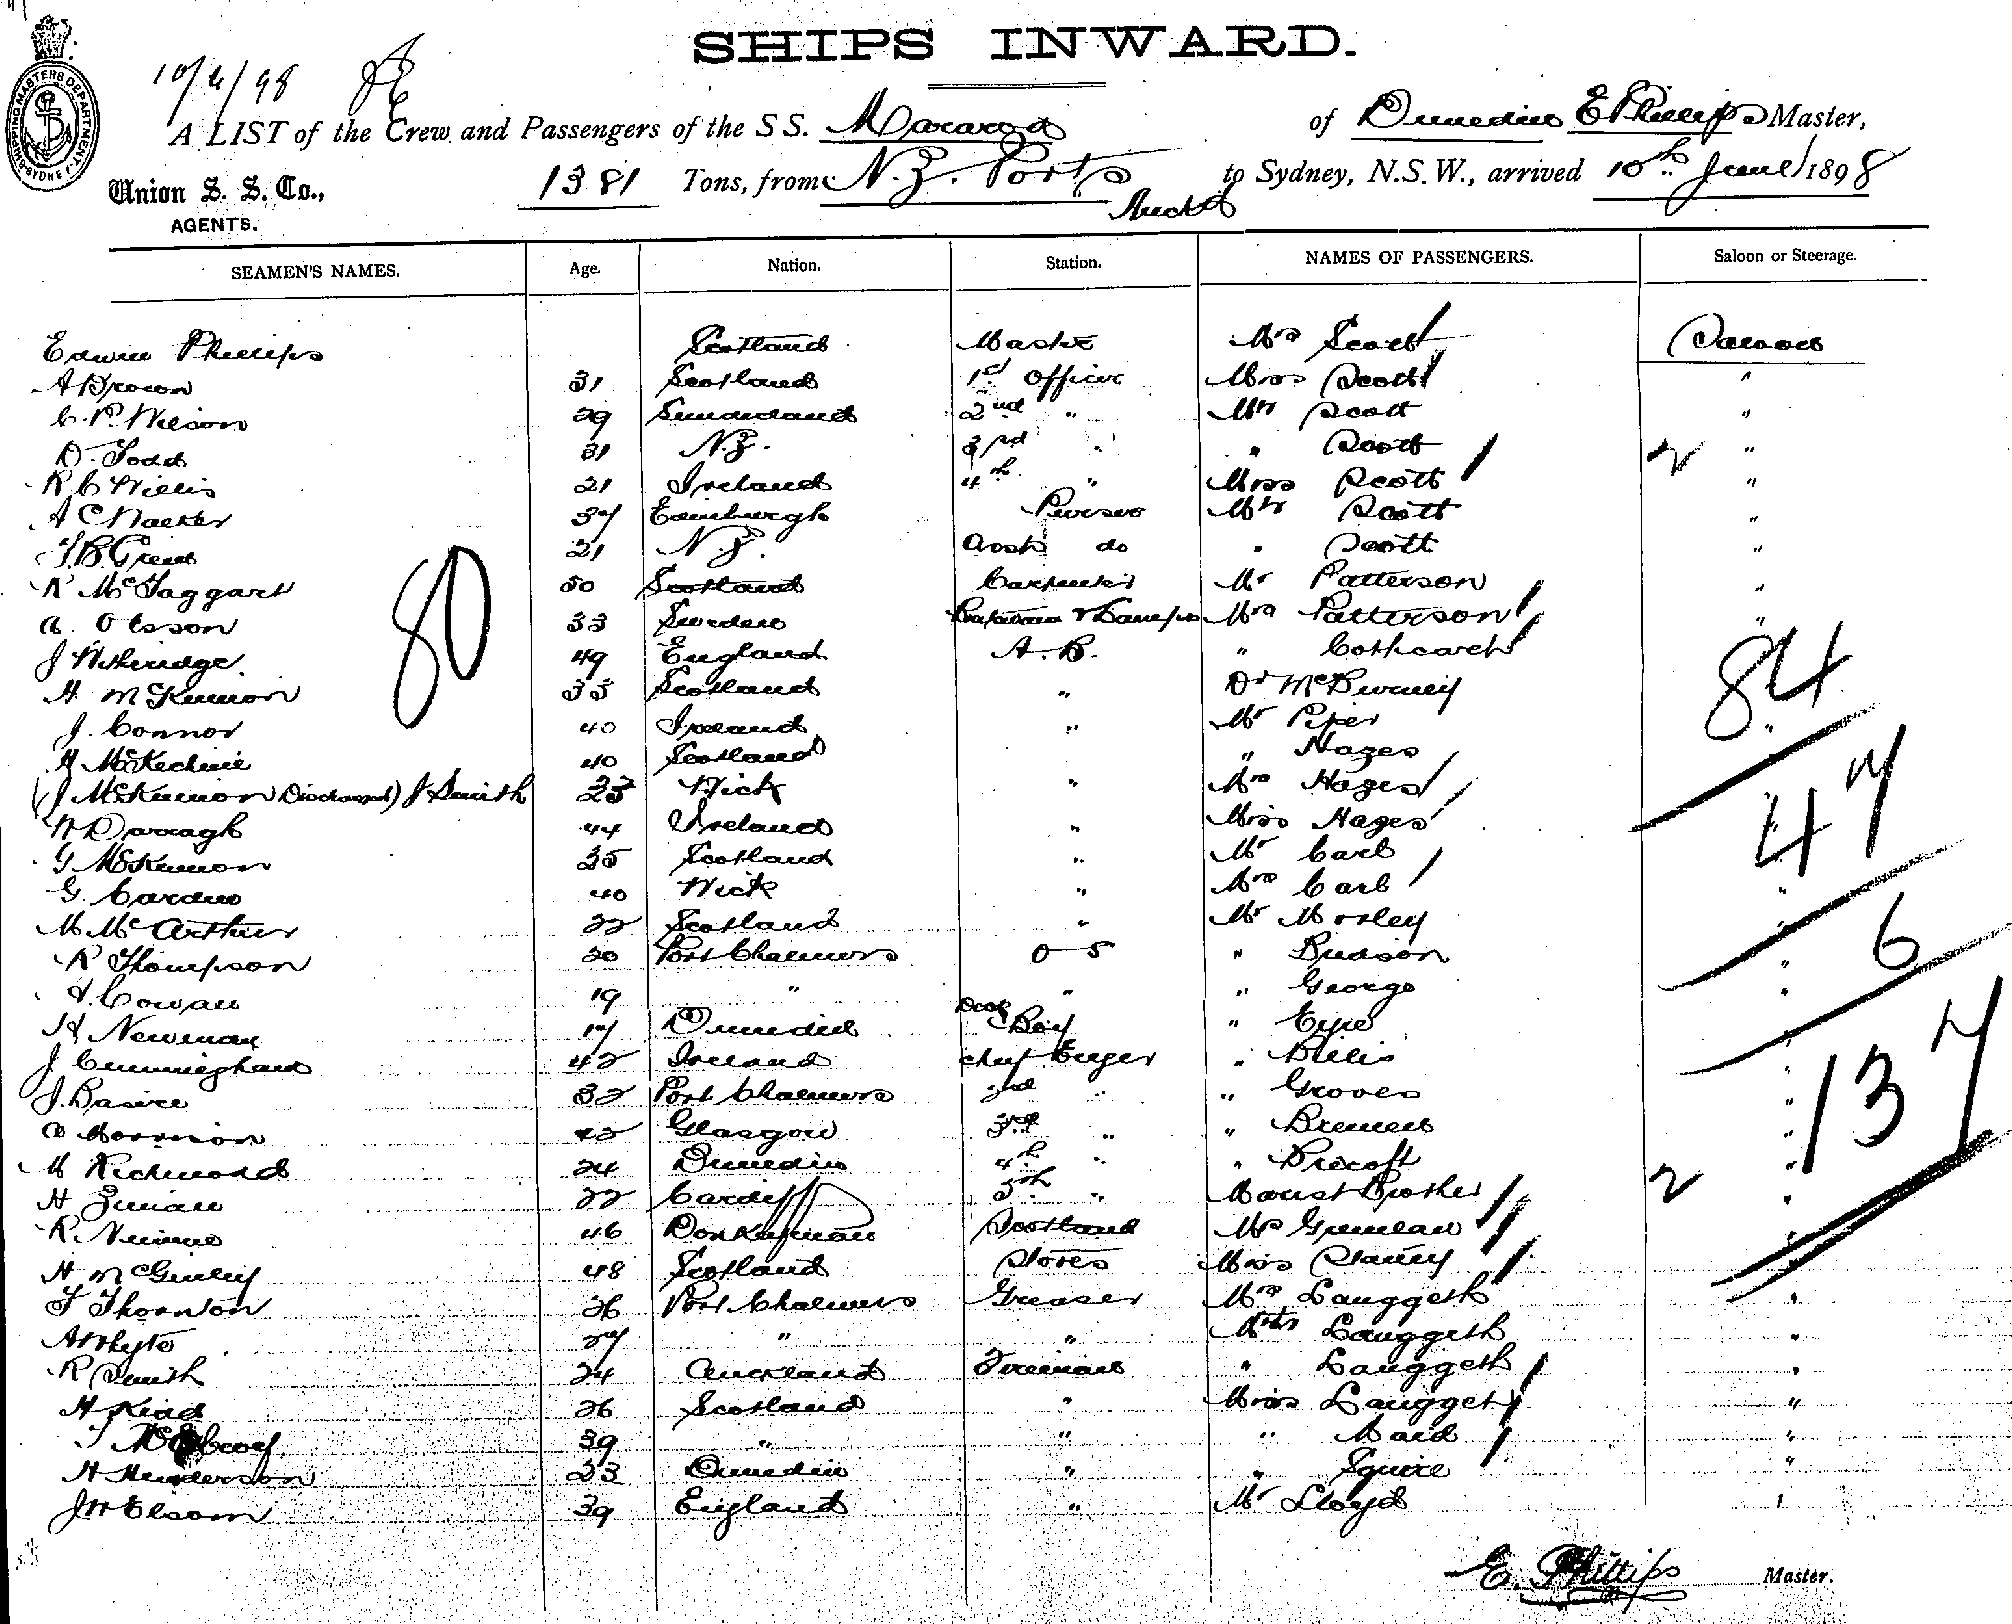 SHIPS INWARD.
SHIPPING MASTERS DEPARTMENT. SYDNEY
10/6/98
A LIST of the Crew and Passengers of the S S. Mararoa of Dunedin E Phillips Master,
Union S. S. Co., 1381 Tons, from N. Z. Ports to Sydney, N.S.W., arrived 10th June 1898
Auckd
AGENTS.
SEAMEN'S NAMES. Age. Nation. Station. NAMES OF PASSENGERS. Saloon or Steerage.
Edwin Phillips Scotland Master Mrs Scott Saloon
A Brown 31 Scotland 1st Officer Miss Scott "
C. P. Wilson 29 Sunderland 2nd " Mstr Scott "
D. Todd 31 N.Z. 3rd " " Scott 2 "
R C Willis 21 Ireland 4th " Miss Scott "
A C 37 Edinburgh Purser Mstr Scott "
21 N Z. Asst do " Scott "
R McTaggart 50 Scotland Carpenter Mr Patterson "
A. Olsson 33 Sweden & Lamps Mrs Patterson "
J Witheridge 49 England A. B. " Cothcart
80
84
H McKinnon 33 Scotland " Dr McBurney
J. Connor 40 Ireland " Mr Piper "
A McKechnie 40 Scotland " Hages
(J McKinnon Discharged) J Smith 23 Wick " Mrs Hages
47
W Darragh 44 Ireland " Miss Hages
G McKinnon 25 Scotland " Mr Carl
G. Cardno 40 Wick " Mrs Carl "
M McArthur 22 Scotland " Mr Morley "
6
R Thompson 20 Port Chalmers O S " Budson "
A. Cowan 19 " " " George "
H Newman 17 Dunedin Deck Boy " Eyre "
J Cunningham 42 Ireland chief Enger " Bellis "
137
J. Basire 32 Port Chalmers 2nd " " Groves "
A Morrison 42 Glasgow 3rd " " "
M Richmond 24 Dunedin 4th " " "
H 22 Cardiff 5th " Marist Brother 2 "
R. 46 Donkeyman Scotland Mrs "
H McGinley 48 Scotland Stores Miss "
T Thornton 26 Port Chalmers Greaser Mrs Langgeth "
A Whyte 27 " " Mstr Langgeth "
R Smith 24 Auckland Fireman " Langgeth "
H Kidd 26 Scotland " Miss Langgeth "
T 39 " " " Maid "
H Henderson 23 Dunedin " " Squire "
J W Elsom 39 England " Mr Lloyd
E. Phillips Master.